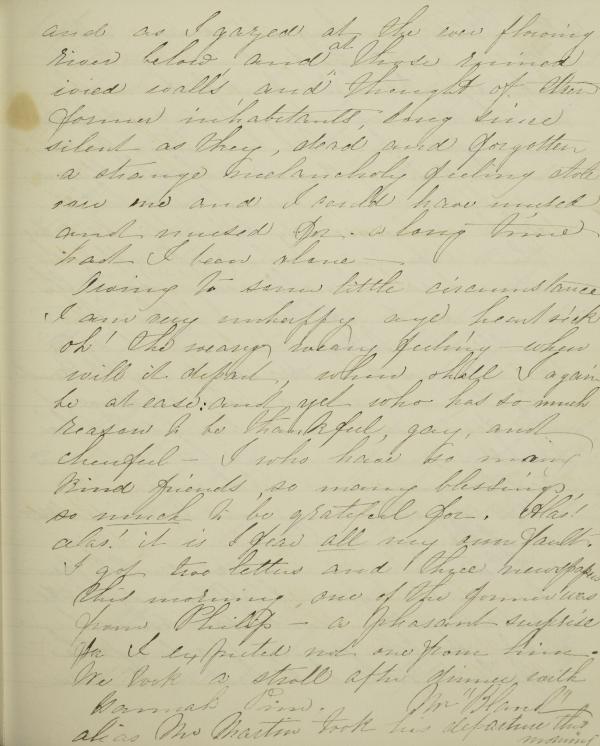 and as I gazed at the ever flowing
river below, and at those ruined
ivied walls and thought of their
former inhabitants, long since
silent as they, dead and forgotten
a strange melancholy feeling stole
over me and I could have mused
and mused for a long time
had I been alone —
Owing to some little circumstance
I am very unhappy aye heart sick
oh! the weary weary feeling – when
will it depart, when shall I again
be at ease: and yet who has so much
reason to be thankful, gay, and
cheerful – I who have so many
kind friends, so many blessings,
so much to be grateful for. Alas!
alas! it is I fear all my own fault.
I got two letters and three newspapers
this morning, one of the former was
from Philip – a pleasant surprise
for I expected not one from him.
We took a stroll after dinner with
Hannah Pim. Mr "Bland"
alias Mr Martin took his departure this
morning